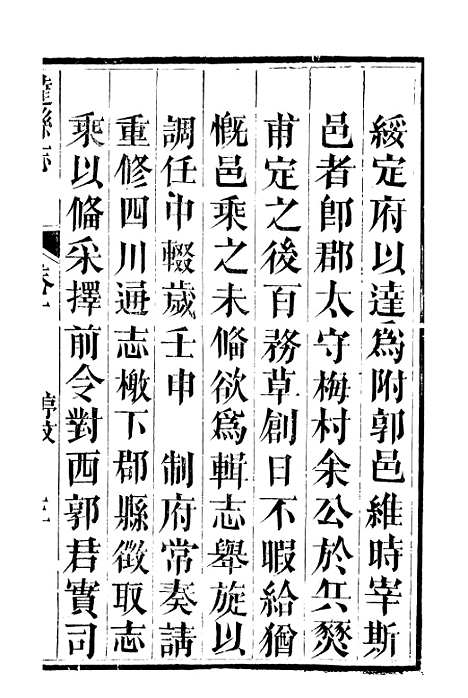 綏定府以達爲附郭邑維時宰斯
邑者卽郡太守梅村余公於兵燹
甫定之後百務草創日不暇給猶
慨邑乘之未偹欲爲輯志舉旋以
調任中輟歲壬申　制府常奏請
重修四川通志檄下郡縣徵取志
乘以偹采擇前令對西郭君實司
達縣志